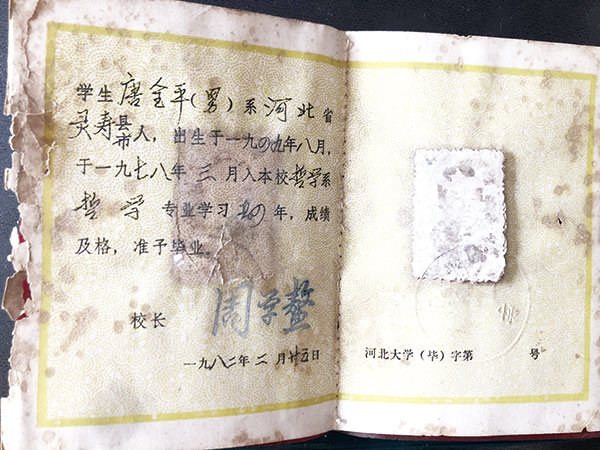 学生唐全平(男)系河北省
灵寿县市人，出生于一九四九年八月，
于一九七八年三月入本校哲学系
哲学专业学习四年，成绩
及格，准予毕业。
校长 周学鳌
一九八二年二月廿五日
河北大学（毕）字第 号